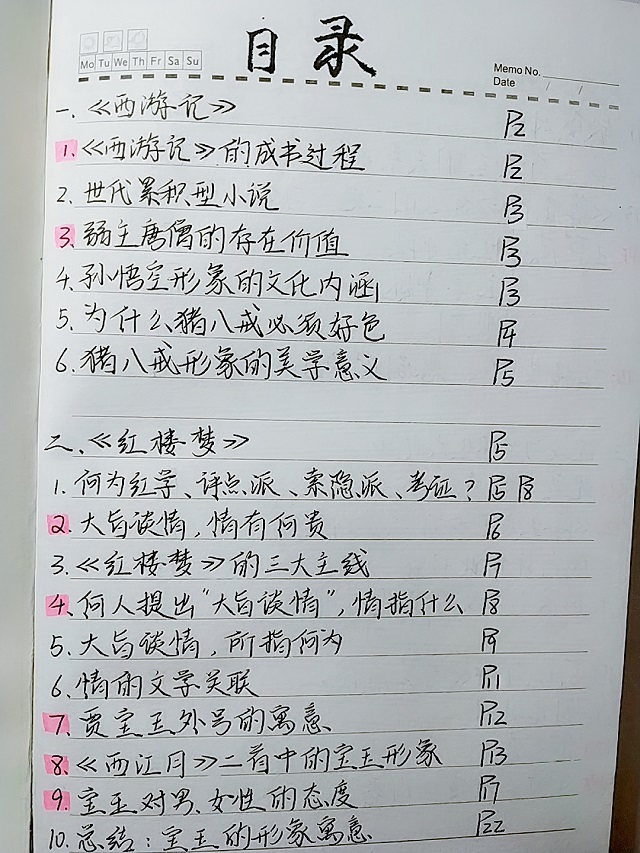 目录
Mo Tu We Th Fr Sa Su
Memo No.
Date / /
一、《西游记》 P2
1.《西游记》的成书过程 P2
2. 世代累积型小说 P3
3. 弱主唐僧的存在价值 P3
4. 孙悟空形象的文化内涵 P3
5. 为什么猪八戒必须好色 P4
6. 猪八戒形象的美学意义 P5
二、《红楼梦》 P5
1. 何为红学、评点派、索隐派、考证? P5 P8
2. 大旨谈情,情有何贵 P6
3.《红楼梦》的三大主线 P7
4. 何人提出“大旨谈情”,情指什么 P8
5. 大旨谈情,所指何为 P9
6. 情的文学关联 P11
7. 贾宝玉外号的寓意 P12
8.《西江月》二首中的宝玉形象 P13
9. 宝玉对男、女性的态度 P17
10. 总结:宝玉的形象寓意 P22